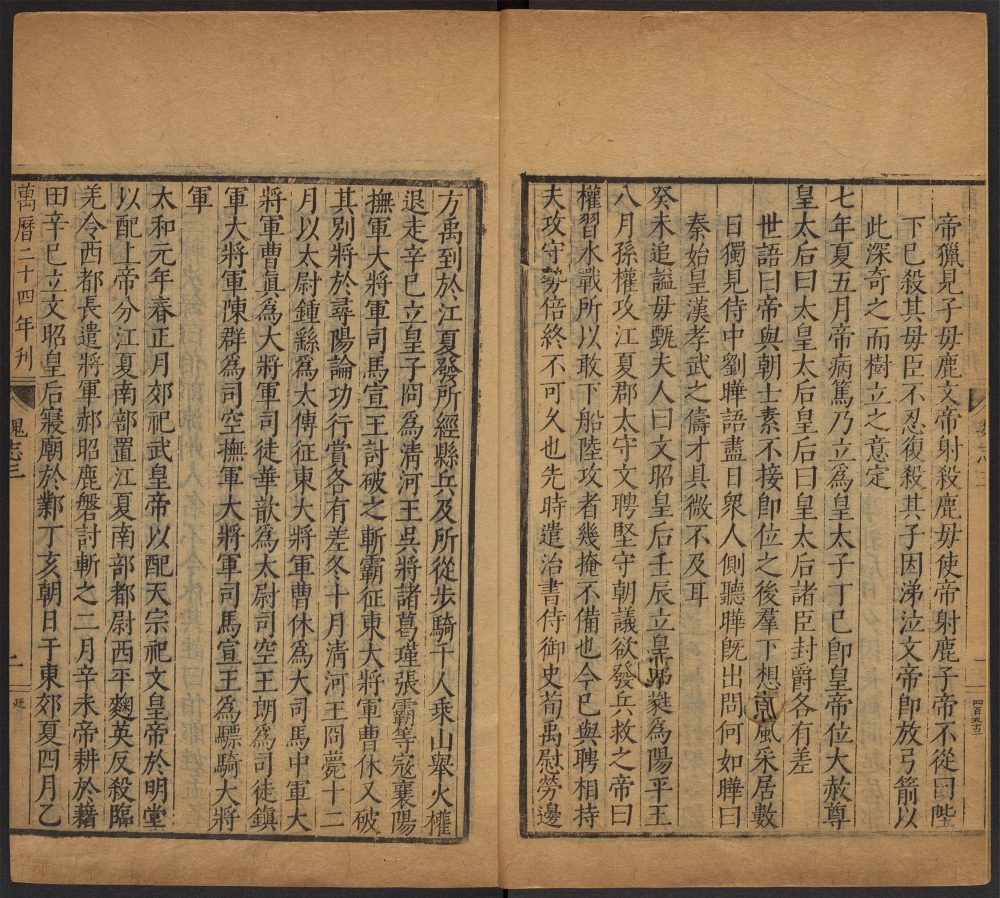 帝獵見子母鹿文帝射殺鹿母使帝射鹿子帝不從曰陛
下已殺其母臣不忍復殺其子因涕泣文帝即放弓箭以
此深奇之而樹立之意定
七年夏五月帝病篤乃立爲皇太子丁巳即皇帝位大赦尊
皇太后曰太皇太后皇后曰皇太后諸臣封爵各有差
世語曰帝與朝士素不接即位之後羣下想風采居數
日獨見侍中劉曄語盡日衆人側聽曄既出問何如曄曰
秦始皇漢孝武之儔才具微不及耳
癸未追謚母甄夫人曰文昭皇后壬辰立皇弟蕤爲陽平王
八月孫權攻江夏郡太守文聘堅守朝議欲發兵救之帝曰
權習水戰所以敢下船陸攻者幾掩不備也今已與聘相持
夫攻守勢倍終不可久也先時遣治書侍御史荀禹慰勞邊
方禹到於江夏發所經縣兵及所從步騎千人乘山舉火權
退走辛巳立皇子冏爲清河王吳將諸葛瑾張霸等寇襄陽
撫軍大將軍司馬宣王討破之斬霸征東大將軍曹休又破
其別將於尋陽論功行賞各有差冬十月清河王冏薨十二
月以太尉鍾繇爲太傅征東大將軍曹休爲大司馬中軍大
將軍曹眞爲大將軍司徒華歆爲太尉司空王朗爲司徒鎮
軍大將軍陳群爲司空撫軍大將軍司馬宣王爲驃騎大將
軍
太和元年春正月郊祀武皇帝以配天宗祀文皇帝於明堂
以配上帝分江夏南部置江夏南部都尉西平麴英反殺臨
羌令西都長遣將軍郝昭鹿磐討斬之二月辛未帝耕於籍
田辛巳立文昭皇后寢廟於鄴丁亥朝日于東郊夏四月乙
萬曆二十四年刊
魏志三
二